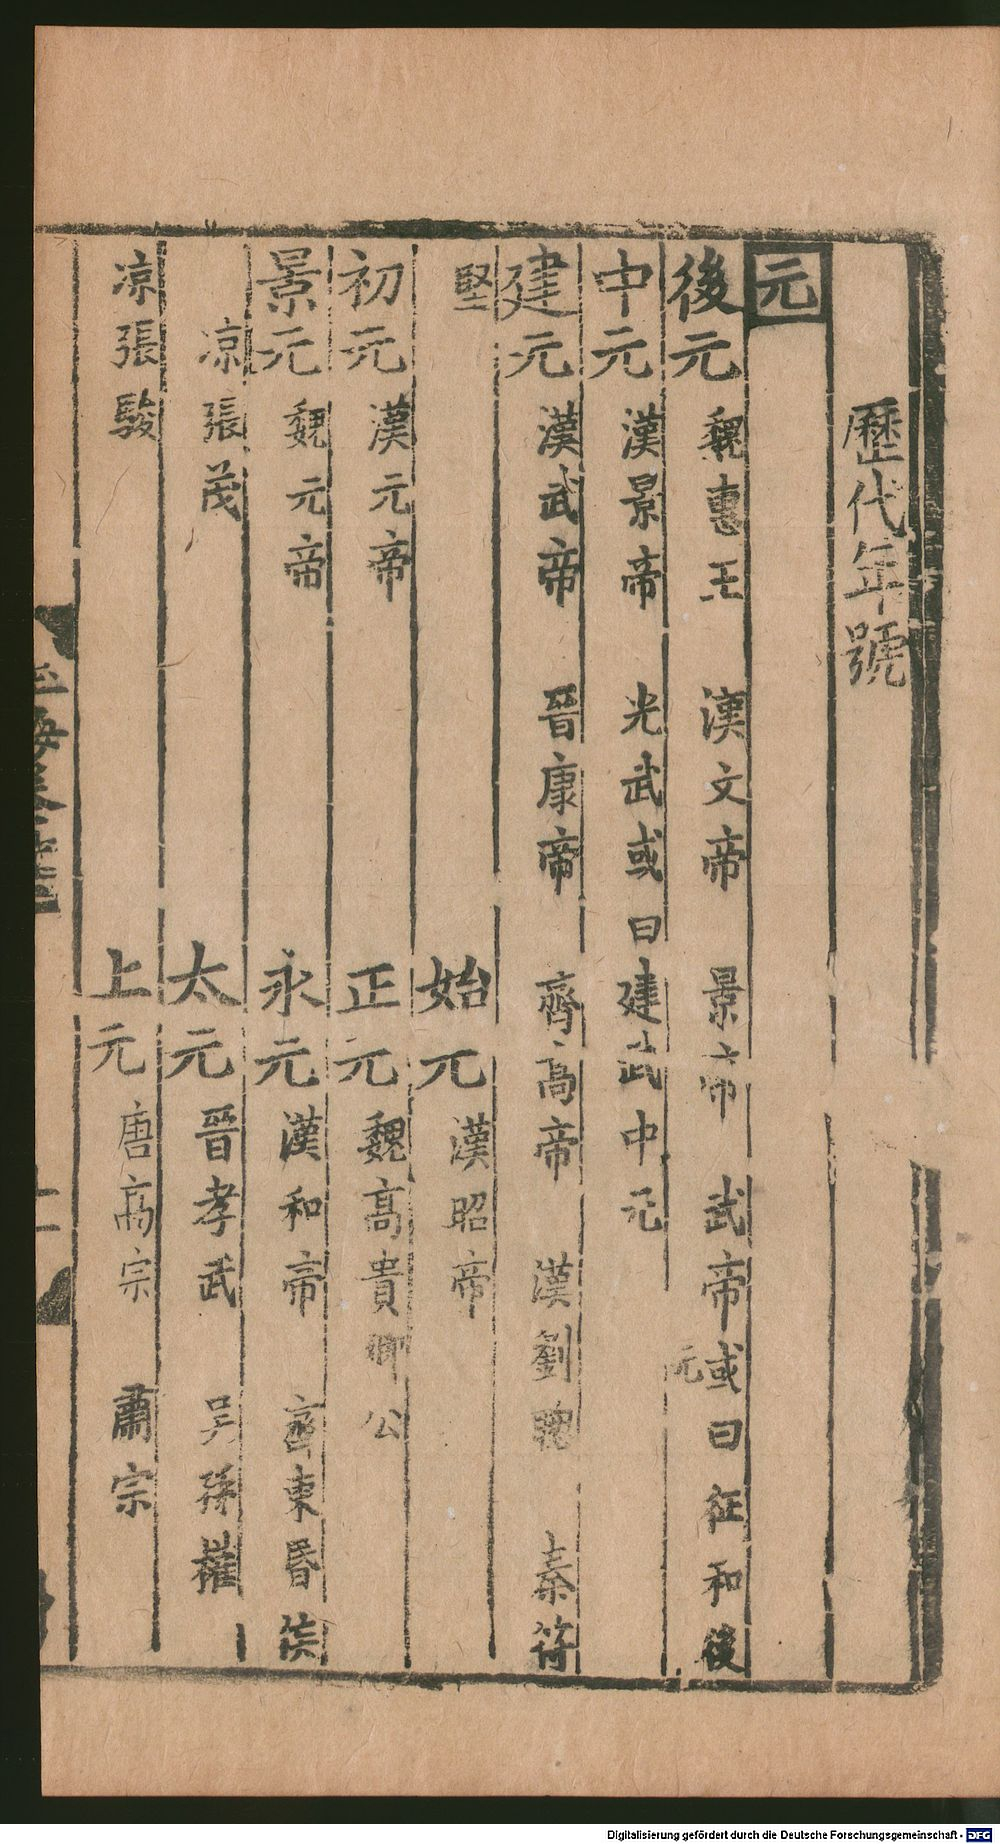 歷代年號
元
後元 魏惠王 漢文帝 景帝 武帝或曰征和後元
中元 漢景帝 光武或曰建武中元
建元 漢武帝 晉康帝 齊高帝 漢劉聰 秦苻
堅 始元 漢昭帝
初元 漢元帝 正元 魏高貴鄉公
景元 魏元帝 永元 漢和帝 齊東昏侯
凉張茂 太元 晉孝武 吳孫權
凉張駿 上元 唐高宗 肅宗
Digitalisierung gefördert durch die Deutsche Forschungsgemeinschaft - DFG